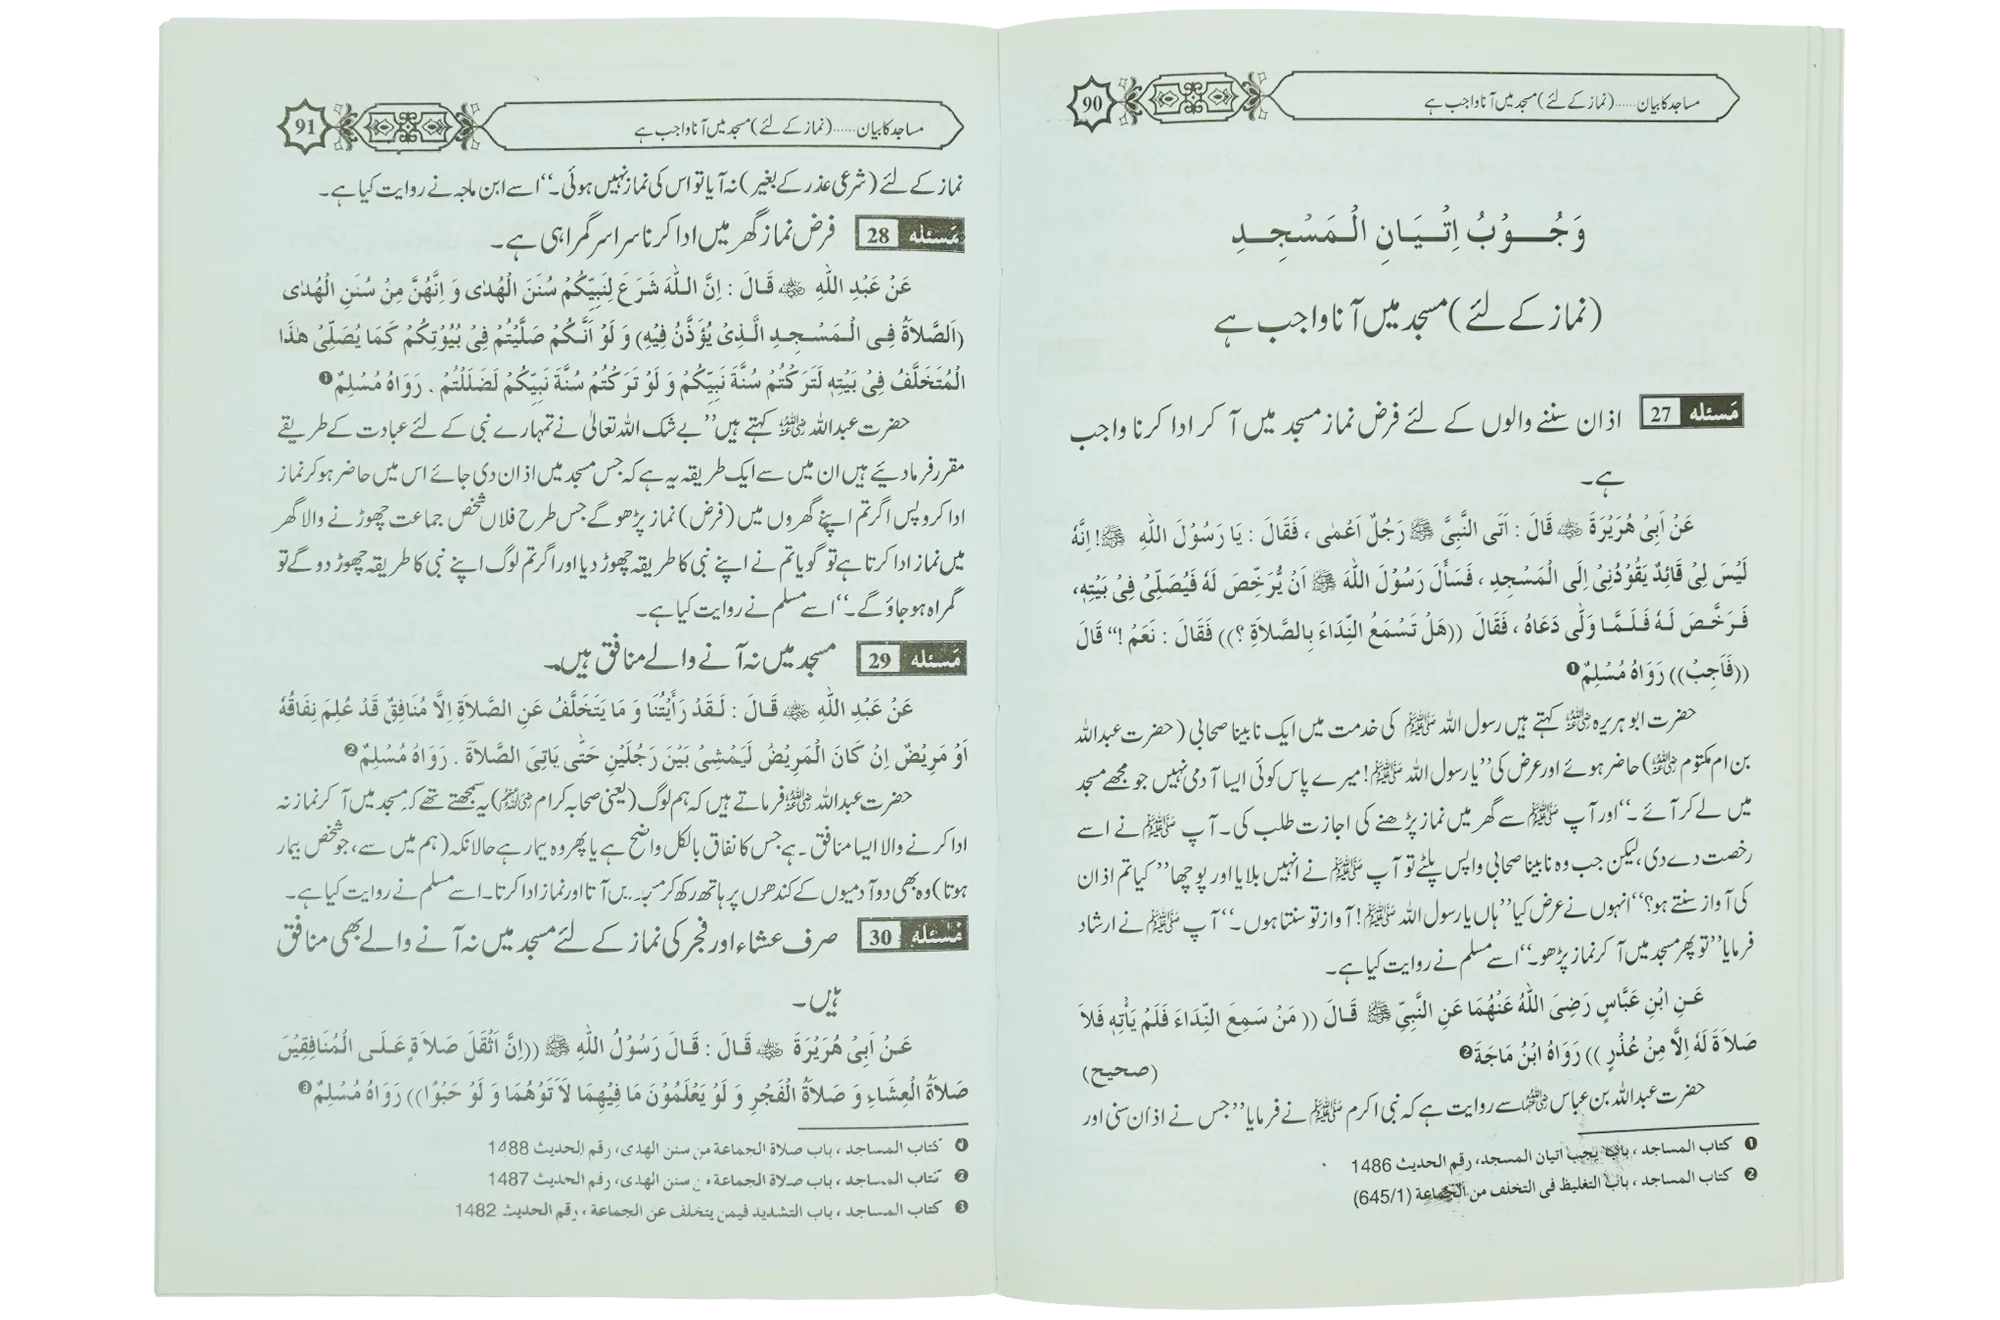 90
مساجد کا بیان ...... (نماز کے لئے) مسجد میں آنا واجب ہے
وَجُوْبُ اِتْيَانِ الْمَسْجِدِ
(نماز کے لئے) مسجد میں آنا واجب ہے
مَسئله 27 اذان سننے والوں کے لئے فرض نماز مسجد میں آ کر ادا کرنا واجب
ہے۔
عَنْ اَبِیْ هُرَيْرَةَ ﷺ قَالَ : اَتَی النَّبِیَّ ﷺ رَجُلٌ اَعْمٰی ، فَقَالَ : يَا رَسُوْلَ اللهِ ﷺ! اِنَّهٗ
لَيْسَ لِیْ قَائِدٌ يَقُوْدُنِیْ اِلَی الْمَسْجِدِ ، فَسَأَلَ رَسُوْلَ اللهِ ﷺ اَنْ يُّرَخِّصَ لَهٗ فَيُصَلِّیْ فِیْ بَيْتِهٖ،
فَرَخَّصَ لَهٗ فَلَمَّا وَلّٰی دَعَاهُ ، فَقَالَ ((هَلْ تَسْمَعُ النِّدَاءَ بِالصَّلاَةِ ؟)) فَقَالَ : نَعَمْ !“ قَالَ
((فَاَجِبْ)) رَوَاهُ مُسْلِمٌ❶
حضرت ابو ہریرہ رضی اللہ عنہ کہتے ہیں رسول اللہ ﷺ کی خدمت میں ایک نابینا صحابی (حضرت عبداللہ
بن ام مکتوم رضی اللہ عنہ) حاضر ہوئے اور عرض کی ”یا رسول اللہ ﷺ! میرے پاس کوئی ایسا آدمی نہیں جو مجھے مسجد
میں لے کر آئے ۔“ اور آپ ﷺ سے گھر میں نماز پڑھنے کی اجازت طلب کی۔ آپ ﷺ نے اسے
رخصت دے دی، لیکن جب وہ نابینا صحابی واپس پلٹے تو آپ ﷺ نے انہیں بلایا اور پوچھا ”کیا تم اذان
کی آواز سنتے ہو؟“ انہوں نے عرض کیا ”ہاں یا رسول اللہ ﷺ! آواز تو سنتا ہوں۔“ آپ ﷺ نے ارشاد
فرمایا ”تو پھر مسجد میں آ کر نماز پڑھو۔“ اسے مسلم نے روایت کیا ہے۔
عَنِ ابْنِ عَبَّاسٍ رَضِیَ اللهُ عَنْهُمَا عَنِ النَّبِیِّ ﷺ قَالَ (( مَنْ سَمِعَ النِّدَاءَ فَلَمْ يَأْتِهٖ فَلاَ
صَلاَةَ لَهٗ اِلَّا مِنْ عُذْرٍ )) رَوَاهُ ابْنُ مَاجَةَ❷ (صحيح)
حضرت عبداللہ بن عباس رضی اللہ عنہما سے روایت ہے کہ نبی اکرم ﷺ نے فرمایا ”جس نے اذان سنی اور
❶ كتاب المساجد ، باب يجب اتيان المسجد، رقم الحديث 1486
❷ كتاب المساجد ، باب التغليظ فی التخلف من الجماعة (645/1)
91
مساجد کا بیان ...... (نماز کے لئے) مسجد میں آنا واجب ہے
نماز کے لئے (شرعی عذر کے بغیر) نہ آیا تو اس کی نماز نہیں ہوئی۔“ اسے ابن ماجہ نے روایت کیا ہے۔
مَسئله 28 فرض نماز گھر میں ادا کرنا سراسر گمراہی ہے۔
عَنْ عَبْدِ اللهِ رضی اللہ عنہ قَالَ : اِنَّ اللهَ شَرَعَ لِنَبِيِّكُمْ سُنَنَ الْهُدٰی وَ اِنَّهُنَّ مِنْ سُنَنِ الْهُدٰی
(اَلصَّلاَةُ فِی الْمَسْجِدِ الَّذِیْ يُؤَذَّنُ فِيْهِ) وَ لَوْ اَنَّكُمْ صَلَّيْتُمْ فِیْ بُيُوْتِكُمْ كَمَا يُصَلِّیْ هٰذَا
الْمُتَخَلِّفُ فِیْ بَيْتِهٖ لَتَرَكْتُمْ سُنَّةَ نَبِيِّكُمْ وَ لَوْ تَرَكْتُمْ سُنَّةَ نَبِيِّكُمْ لَضَلَلْتُمْ . رَوَاهُ مُسْلِمٌ❶
حضرت عبداللہ رضی اللہ عنہ کہتے ہیں ”بے شک اللہ تعالیٰ نے تمہارے نبی کے لئے عبادت کے طریقے
مقرر فرما دیئے ہیں ان میں سے ایک طریقہ یہ ہے کہ جس مسجد میں اذان دی جائے اس میں حاضر ہو کر نماز
ادا کرو پس اگر تم اپنے گھروں میں (فرض) نماز پڑھو گے جس طرح فلاں شخص جماعت چھوڑنے والا گھر
میں نماز ادا کرتا ہے تو گویا تم نے اپنے نبی کا طریقہ چھوڑ دیا اور اگر تم لوگ اپنے نبی کا طریقہ چھوڑ دو گے تو
گمراہ ہو جاؤ گے۔“ اسے مسلم نے روایت کیا ہے۔
مَسئله 29 مسجد میں نہ آنے والے منافق ہیں۔
عَنْ عَبْدِ اللهِ رضی اللہ عنہ قَالَ : لَقَدْ رَأَيْتُنَا وَ مَا يَتَخَلَّفُ عَنِ الصَّلاَةِ اِلَّا مُنَافِقٌ قَدْ عُلِمَ نِفَاقُهٗ
اَوْ مَرِيْضٌ اِنْ كَانَ الْمَرِيْضُ لَيَمْشِیْ بَيْنَ رَجُلَيْنِ حَتّٰی يَاتِیَ الصَّلاَةَ . رَوَاهُ مُسْلِمٌ❷
حضرت عبداللہ رضی اللہ عنہ فرماتے ہیں کہ ہم لوگ (یعنی صحابہ کرام رضی اللہ عنہم) یہ سمجھتے تھے کہ مسجد میں آ کر نماز نہ
ادا کرنے والا ایسا منافق ۔ ہے جس کا نفاق بالکل واضح ہے یا پھر وہ بیمار ہے حالانکہ (ہم میں سے، جو شخص بیمار
ہوتا) وہ بھی دو آدمیوں کے کندھوں پر ہاتھ رکھ کر مسجد میں آتا اور نماز ادا کرتا۔ اسے مسلم نے روایت کیا ہے۔
مَسئله 30 صرف عشاء اور فجر کی نماز کے لئے مسجد میں نہ آنے والے بھی منافق
ہیں۔
عَنْ اَبِیْ هُرَيْرَةَ رضی اللہ عنہ قَالَ : قَالَ رَسُوْلُ اللهِ ﷺ ((اِنَّ اَثْقَلَ صَلاَةٍ عَلَی الْمُنَافِقِيْنَ
صَلاَةُ الْعِشَاءِ وَ صَلاَةُ الْفَجْرِ وَ لَوْ يَعْلَمُوْنَ مَا فِيْهِمَا لَاَتَوْهُمَا وَ لَوْ حَبْوًا)) رَوَاهُ مُسْلِمٌ❸
❶ كتاب المساجد ، باب صلاة الجماعة من سنن الهدی، رقم الحديث 1488
❷ كتاب المساجد ، باب صلاة الجماعة من سنن الهدی، رقم الحديث 1487
❸ كتاب المساجد ، باب التشديد فيمن يتخلف عن الجماعة ، رقم الحديث 1482